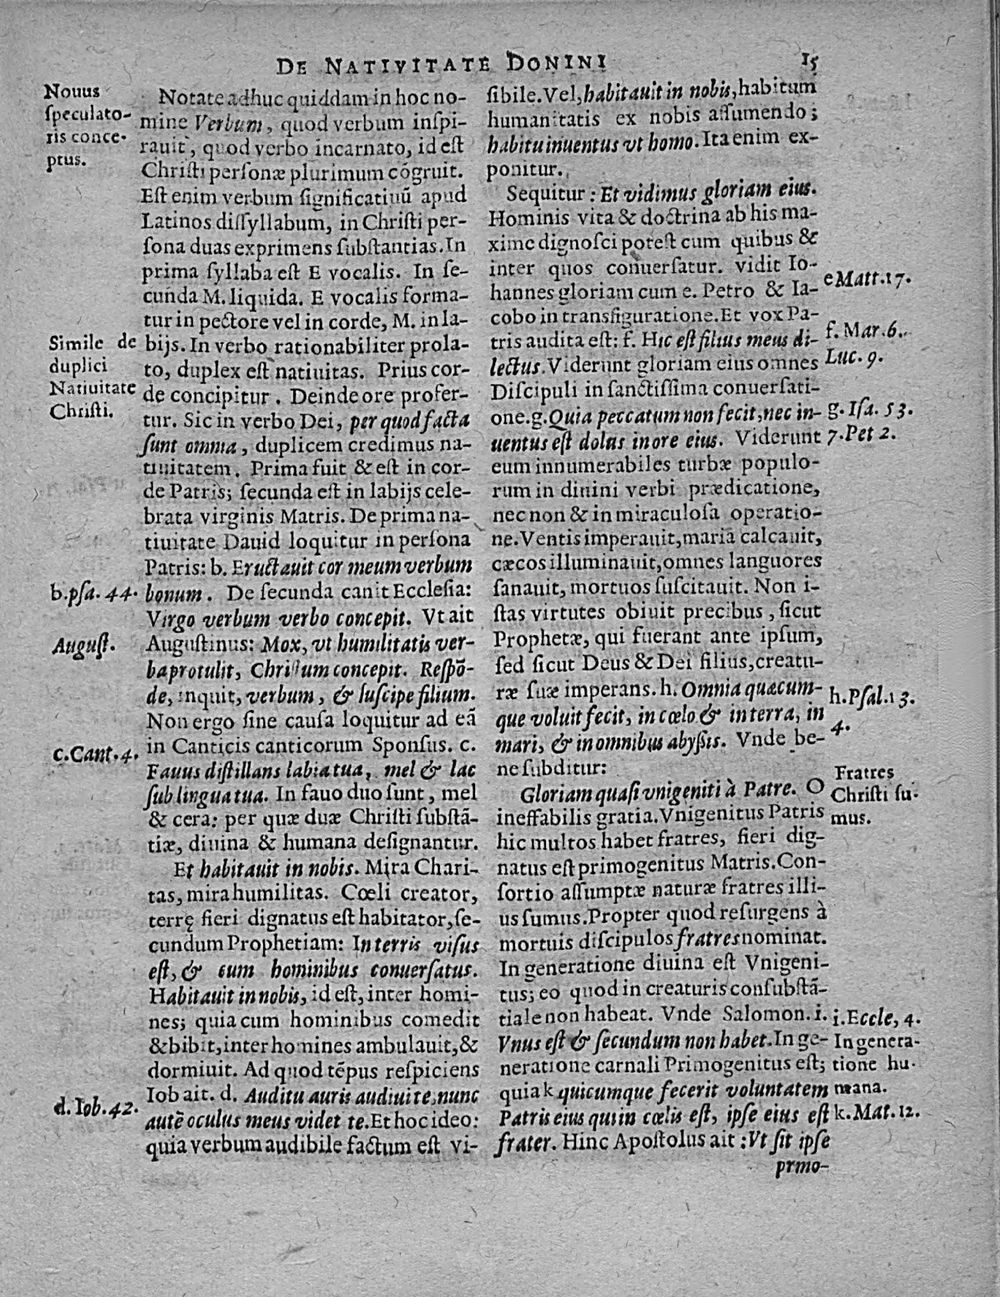 DE NATIVITATE DONINI 15
Nouus
speculato-
ris conce-
ptus.
Simile de
duplici
Natiuitate
Christi.
b. psa. 44.
August.
c. Cant. 4.
d. Iob. 42.
Notate adhuc quiddam in hoc no-
mine Verbum, quod verbum inspi-
rauit, quod verbo incarnato, id est
Christi personæ plurimum cōgruit.
Est enim verbum significatiuū apud
Latinos dissyllabum, in Christi per-
sona duas exprimens substantias. In
prima syllaba est E vocalis. In se-
cunda M. liquida. E vocalis forma-
tur in pectore vel in corde, M. in la-
bijs. In verbo rationabiliter prola-
to, duplex est natiuitas. Prius cor-
de concipitur. Deinde ore profer-
tur. Sic in verbo Dei, per quod facta
sunt omnia, duplicem credimus na-
tiuitatem. Prima fuit & est in cor-
de Patris; secunda est in labijs cele-
brata virginis Matris. De prima na-
tiuitate Dauid loquitur in persona
Patris: b. Eructauit cor meum verbum
bonum. De secunda canit Ecclesia:
Virgo verbum verbo concepit. Vt ait
Augustinus: Mox, vt humilitatis ver-
ba protulit, Christum concepit. Respō-
de, inquit, verbum, & suscipe filium.
Non ergo sine causa loquitur ad eā
in Canticis canticorum Sponsus. c.
Fauus distillans labia tua, mel & lac
sub lingua tua. In fauo duo sunt, mel
& cera: per quæ duæ Christi substā-
tiæ, diuina & humana designantur.
Et habitauit in nobis. Mira Chari-
tas, mira humilitas. Cœli creator,
terrę fieri dignatus est habitator, se-
cundum Prophetiam: In terris visus
est, & cum hominibus conuersatus.
Habitauit in nobis, id est, inter homi-
nes; quia cum hominibus comedit
& bibit, inter homines ambulauit, &
dormiuit. Ad quod tēpus respiciens
Iob ait. d. Auditu auris audiui te, nunc
autē oculus meus videt te. Et hoc ideo:
quia verbum audibile factum est vi-
sibile. Vel, habitauit in nobis, habitum
humanitatis ex nobis assumendo;
habitu inuentus vt homo. Ita enim ex-
ponitur.
Sequitur: Et vidimus gloriam eius.
Hominis vita & doctrina ab his ma-
xime dignosci potest cum quibus &
inter quos conuersatur. vidit Io-
hannes gloriam cum e. Petro & Ia-
cobo in transfiguratione. Et vox Pa-
tris audita est: f. Hic est filius meus di-
lectus. Viderunt gloriam eius omnes
Discipuli in sanctissima conuersati-
one. g. Quia peccatum non fecit, nec in-
uentus est dolus in ore eius. Viderunt
eum innumerabiles turbæ populo-
rum in diuini verbi prædicatione,
nec non & in miraculosa operatio-
ne. Ventis imperauit, maria calcauit,
cæcos illuminauit, omnes languores
sanauit, mortuos suscitauit. Non i-
stas virtutes obiuit precibus, sicut
Prophetæ, qui fuerant ante ipsum,
sed sicut Deus & Dei filius, creatu-
ræ suæ imperans. h. Omnia quæcum-
que voluit fecit, in cœlo & in terra, in
mari, & in omnibus abyssis. Vnde be-
ne subditur:
Gloriam quasi vnigeniti à Patre. O
ineffabilis gratia. Vnigenitus Patris
hic multos habet fratres, fieri dig-
natus est primogenitus Matris. Con-
sortio assumptæ naturæ fratres illi-
us sumus. Propter quod resurgens à
mortuis discipulos fratres nominat.
In generatione diuina est Vnigeni-
tus; eo quod in creaturis consubstā-
tiale non habeat. Vnde Salomon. i.
Vnus est & secundum non habet. In ge-
neratione carnali Primogenitus est;
quia k. quicumque fecerit voluntatem
Patris eius qui in cœlis est, ipse eius est
frater. Hinc Apostolus ait: Vt sit ipse
prmo-
e Matt. 17.
f. Mar. 6.
Luc. 9.
g. Isa. 53.
7. Pet 2.
h. Psal. 13.
4.
Fratres
Christi su-
mus.
i. Eccle, 4.
In genera-
tione hu-
mana.
k. Mat. 12.